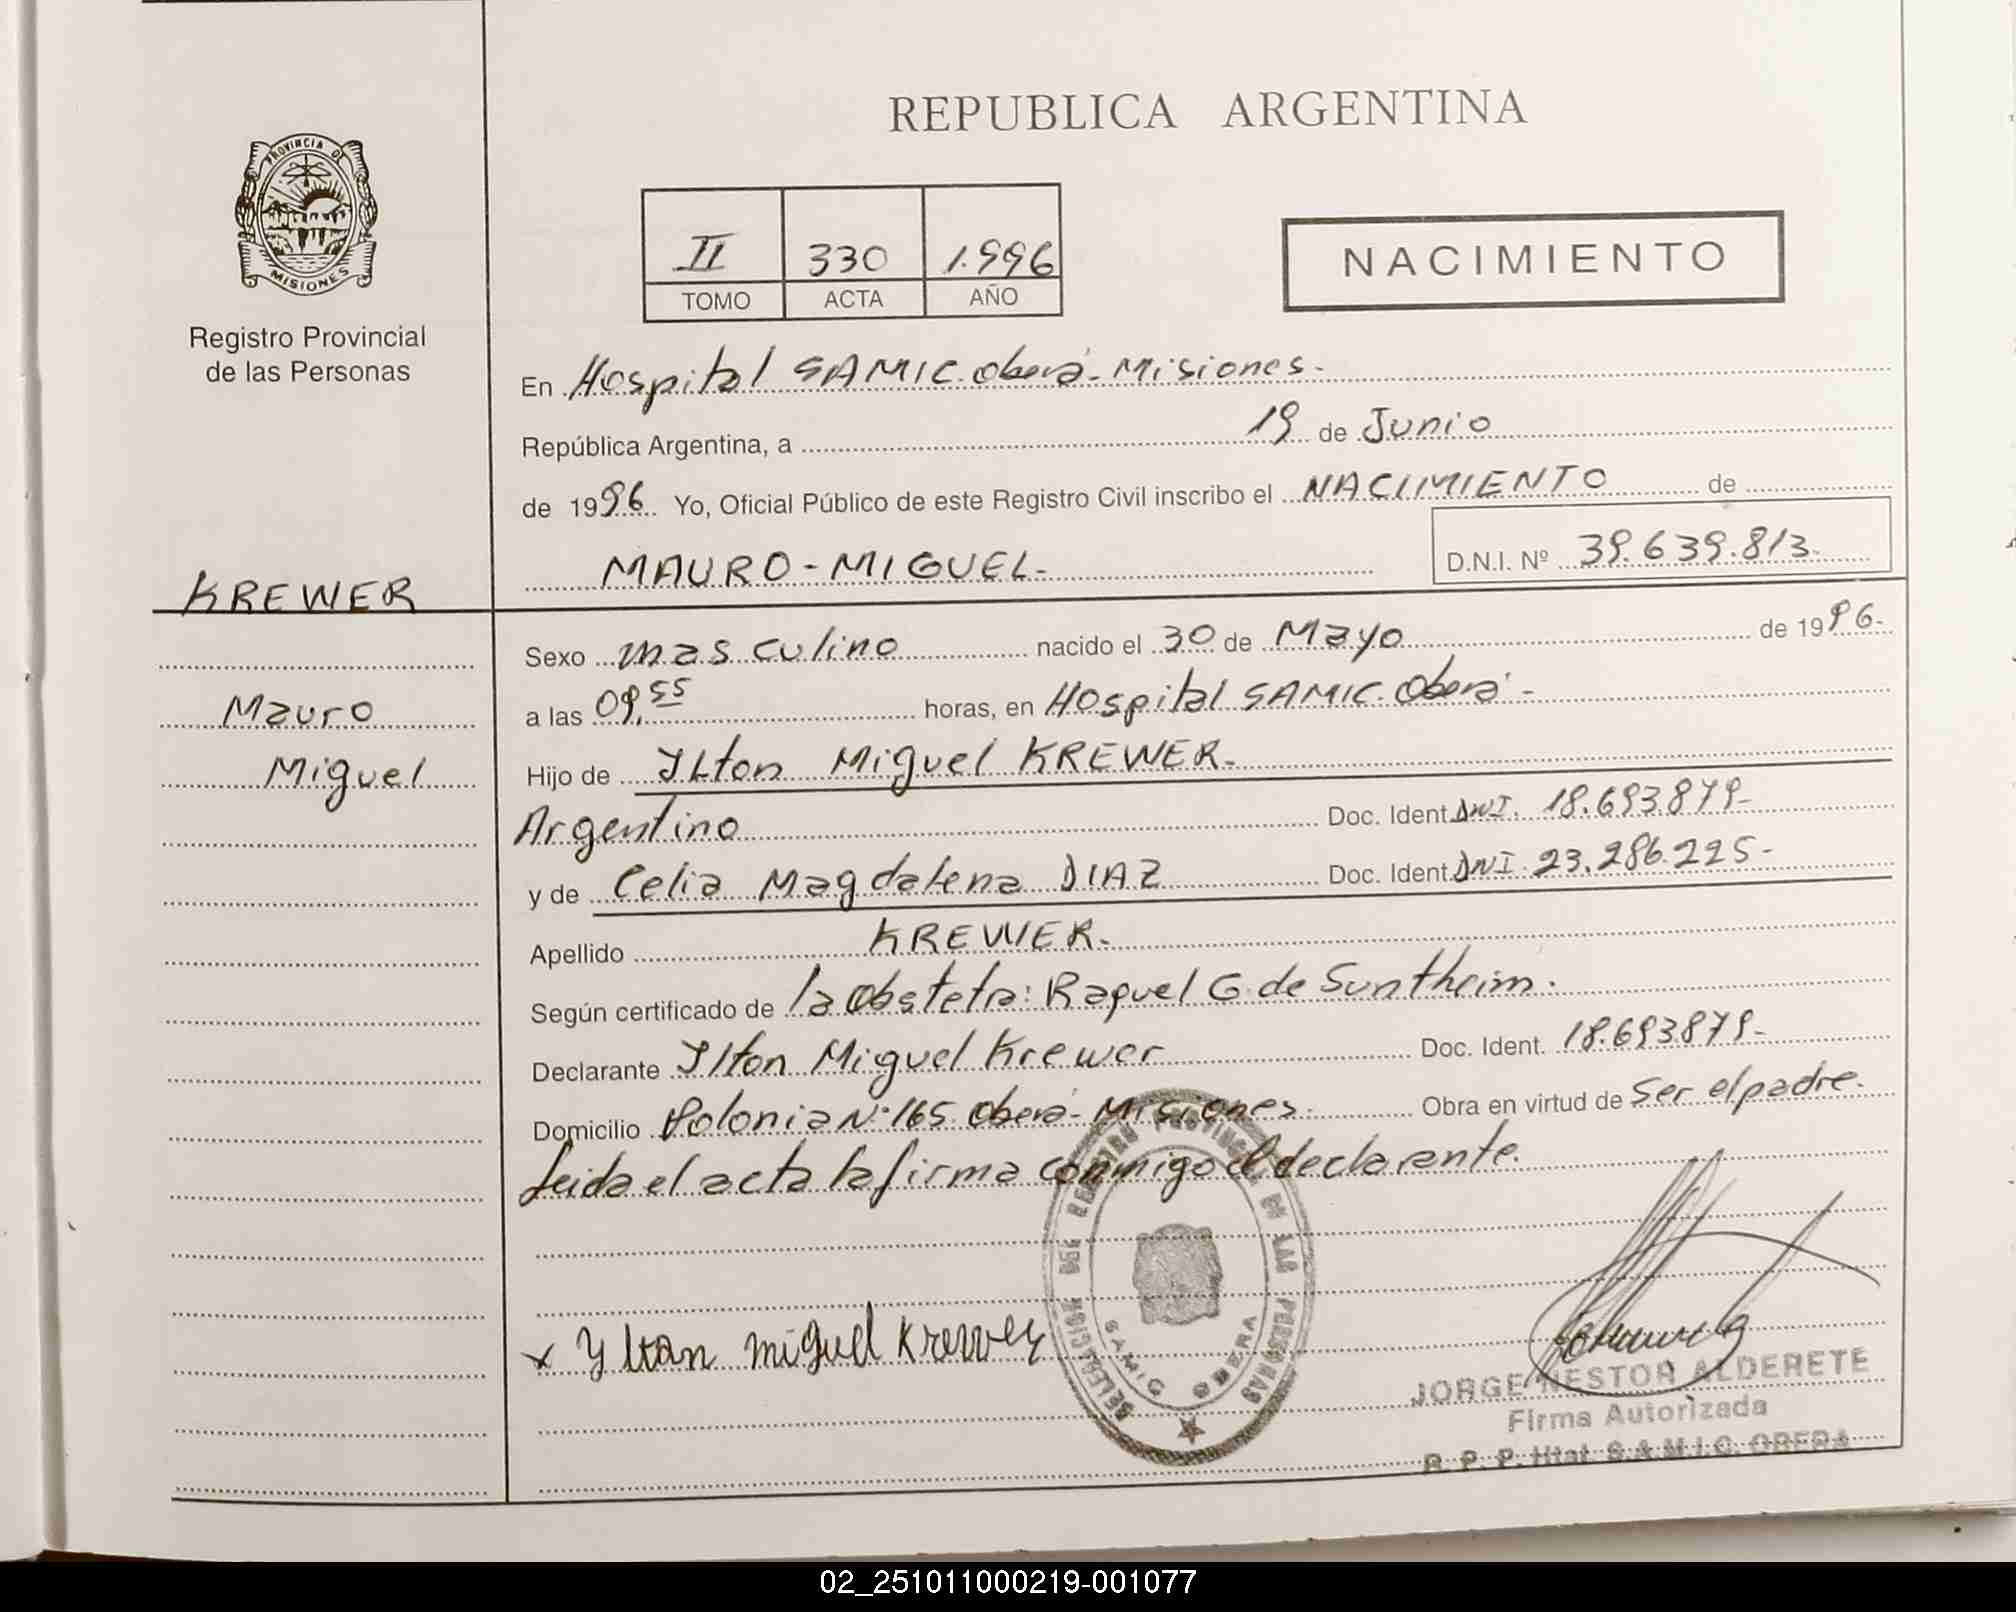 REPUBLICA ARGENTINA
PROVINCIA DE
MISIONES
Registro Provincial
de las Personas
II 330 1.996
TOMO ACTA AÑO
NACIMIENTO
En Hospital SAMIC. Oberá - Misiones.-
República Argentina, a 19 de Junio
de 1996. Yo, Oficial Público de este Registro Civil inscribo el NACIMIENTO de
MAURO - MIGUEL.- D.N.I. Nº 39.639.813.
KREWER
Mauro
Miguel
Sexo masculino nacido el 30 de Mayo de 1996.-
a las 09,55 horas, en Hospital SAMIC. Oberá -
Hijo de Ylton Miguel KREWER.-
Argentino Doc. Ident. DNI. 18.693.879-
y de Celia Magdalena DIAZ Doc. Ident. DNI. 23.286.225-
Apellido KREWER.-
Según certificado de la obstetra: Raquel G. de Suntheim.
Declarante Ylton Miguel Krewer Doc. Ident. 18.693879-
Domicilio Polonia Nº 165 Oberá - Misiones. Obra en virtud de ser el padre.
Leida el acta la firma conmigo el declarante.
x Yltan miguel Krewer
DELEGACION DEL REGISTRO PROVINCIAL DE LAS PERSONAS
SAMIC OBERA
JORGE NESTOR ALDERETE
Firma Autorizada
R. P. P. Htal. S.A.M.I.C. OBERA
02_251011000219-001077